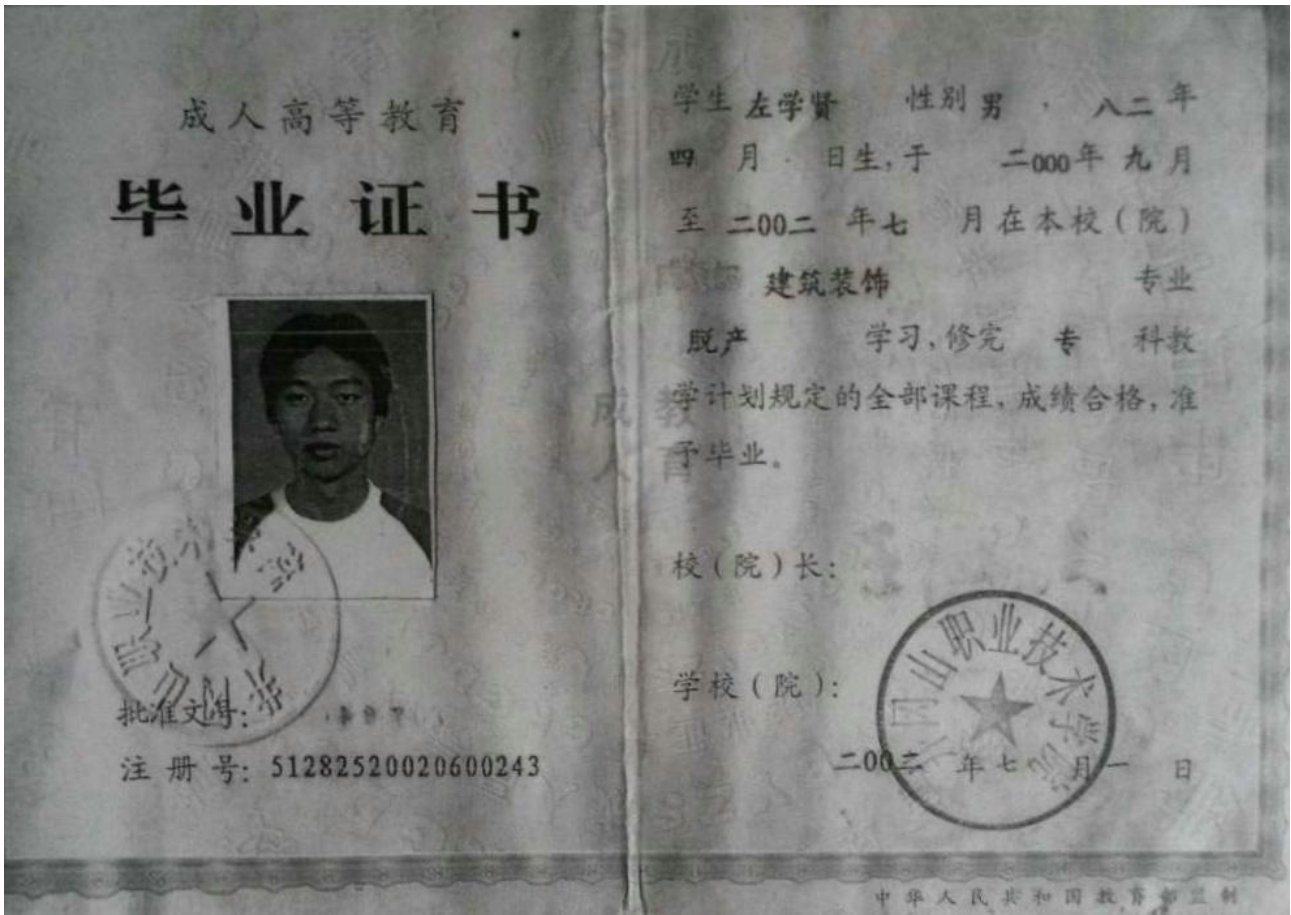 成人高等教育
毕业证书
批准文号:
注册号: 51282520020600243
学生 左学贤 性别 男 , 八二 年
四 月 · 日生, 于 二000年 九 月
至 二00二 年 七 月在本校(院)
建筑装饰 专业
脱产 学习, 修完 专 科教
学计划规定的全部课程, 成绩合格, 准
予毕业。
校(院)长:
学校(院):
冈山职业技术学院
二00二 年 七 月 一 日
中华人民共和国教育部监制
成教
人育